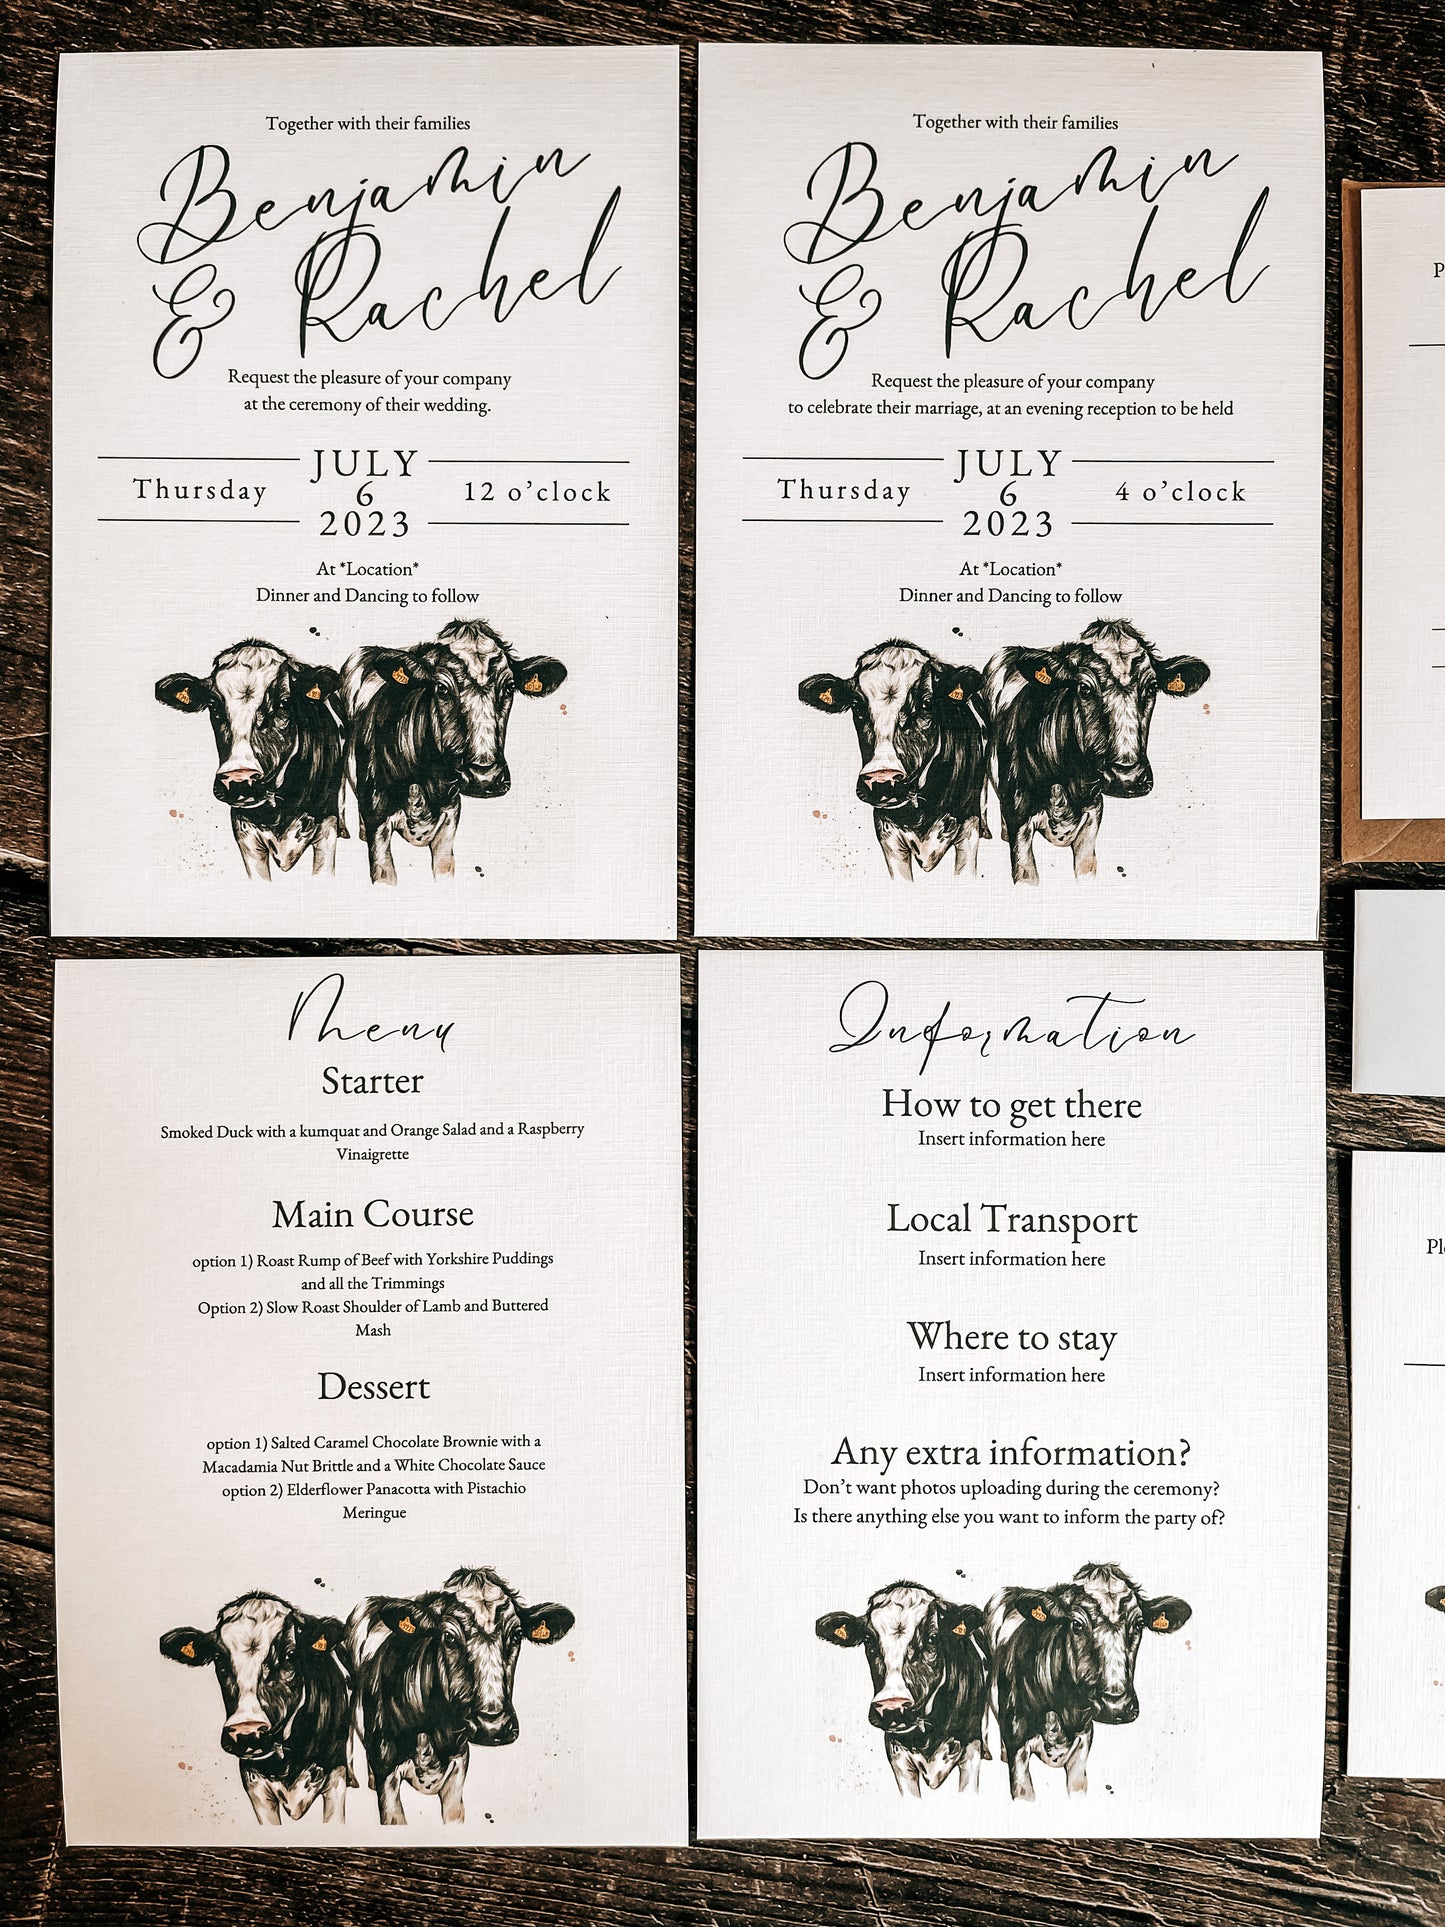 Together with their families
Benjamin
& Rachel
Request the pleasure of your company
at the ceremony of their wedding.
Thursday
JULY
6
2023
12 o’clock
At *Location*
Dinner and Dancing to follow
Together with their families
Benjamin
& Rachel
Request the pleasure of your company
to celebrate their marriage, at an evening reception to be held
Thursday
JULY
6
2023
4 o’clock
At *Location*
Dinner and Dancing to follow
Menu
Starter
Smoked Duck with a kumquat and Orange Salad and a Raspberry
Vinaigrette
Main Course
option 1) Roast Rump of Beef with Yorkshire Puddings
and all the Trimmings
Option 2) Slow Roast Shoulder of Lamb and Buttered
Mash
Dessert
option 1) Salted Caramel Chocolate Brownie with a
Macadamia Nut Brittle and a White Chocolate Sauce
option 2) Elderflower Panacotta with Pistachio
Meringue
Information
How to get there
Insert information here
Local Transport
Insert information here
Where to stay
Insert information here
Any extra information?
Don’t want photos uploading during the ceremony?
Is there anything else you want to inform the party of?